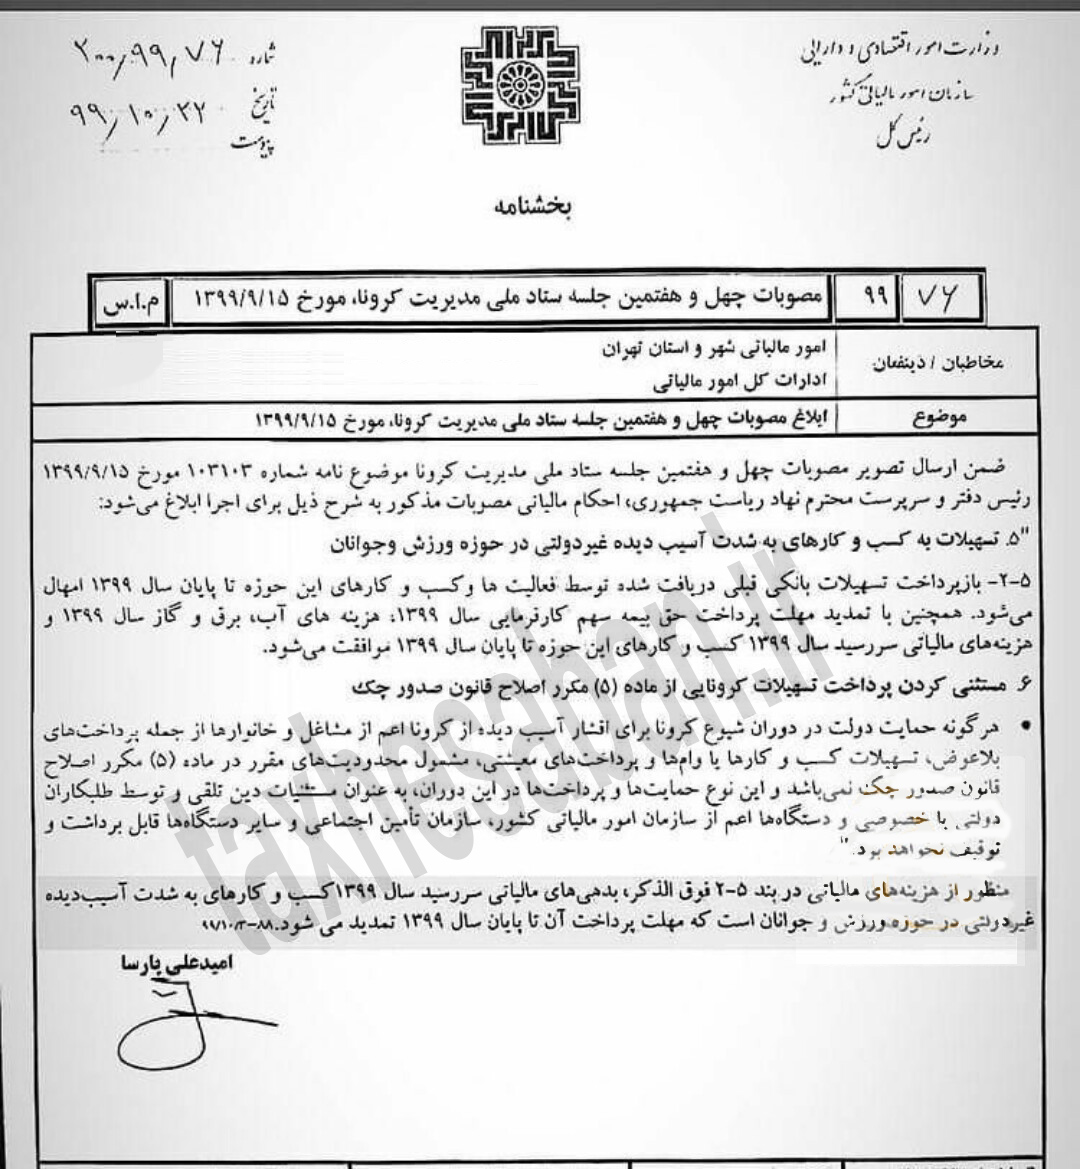 وزارت امور اقتصادی و دارایی
سازمان امور مالیاتی کشور
رئیس کل
شماره ۲۰۰/۹۹/۷۶
تاریخ ۹۹/۱۰/۲۲
پیوست
بخشنامه
۷۶ ۹۹ مصوبات چهل و هفتمین جلسه ستاد ملی مدیریت کرونا، مورخ ۱۳۹۹/۹/۱۵ م.ا.س
مخاطبان / ذینفعان
امور مالیاتی شهر و استان تهران
ادارات کل امور مالیاتی
موضوع ابلاغ مصوبات چهل و هفتمین جلسه ستاد ملی مدیریت کرونا، مورخ ۱۳۹۹/۹/۱۵
ضمن ارسال تصویر مصوبات چهل و هفتمین جلسه ستاد ملی مدیریت کرونا موضوع نامه شماره ۱۰۳۱۰۳ مورخ ۱۳۹۹/۹/۱۵
رئیس دفتر و سرپرست محترم نهاد ریاست جمهوری، احکام مالیاتی مصوبات مذکور به شرح ذیل برای اجرا ابلاغ می‌شود:
"۵. تسهیلات به کسب و کارهای به شدت آسیب دیده غیردولتی در حوزه ورزش وجوانان
۵-۲- بازپرداخت تسهیلات بانکی قبلی دریافت شده توسط فعالیت ها وکسب و کارهای این حوزه تا پایان سال ۱۳۹۹ امهال
می‌شود. همچنین با تمدید مهلت پرداخت حق بیمه سهم کارفرمایی سال ۱۳۹۹، هزینه های آب، برق و گاز سال ۱۳۹۹ و
هزینه‌های مالیاتی سررسید سال ۱۳۹۹ کسب و کارهای این حوزه تا پایان سال ۱۳۹۹ موافقت می‌شود.
۶. مستثنی کردن پرداخت تسهیلات کرونایی از ماده (۵) مکرر اصلاح قانون صدور چک
• هرگونه حمایت دولت در دوران شیوع کرونا برای اقشار آسیب دیده از کرونا اعم از مشاغل و خانوارها از جمله پرداخت‌های
بلاعوض، تسهیلات کسب و کارها یا وام‌ها و پرداخت‌های معیشتی، مشمول محدودیت‌های مقرر در ماده (۵) مکرر اصلاح
قانون صدور چک نمی‌باشد و این نوع حمایت‌ها و پرداخت‌ها در این دوران، به عنوان مستثنیات دین تلقی و توسط طلبکاران
دولتی یا خصوصی و دستگاه‌ها اعم از سازمان امور مالیاتی کشور، سازمان تأمین اجتماعی و سایر دستگاه‌ها قابل برداشت و
توقیف نخواهد بود."
منظور از هزینه‌های مالیاتی در بند ۵-۲ فوق الذکر، بدهی‌های مالیاتی سررسید سال ۱۳۹۹کسب و کارهای به شدت آسیب‌دیده
غیردولتی در حوزه ورزش و جوانان است که مهلت پرداخت آن تا پایان سال ۱۳۹۹ تمدید می شود.
امیدعلی پارسا
taxhesaban.ir